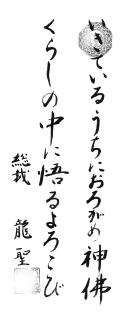 いきているうちにおろがめ神佛
くらしの中に悟るよろこび
総裁
龍聖